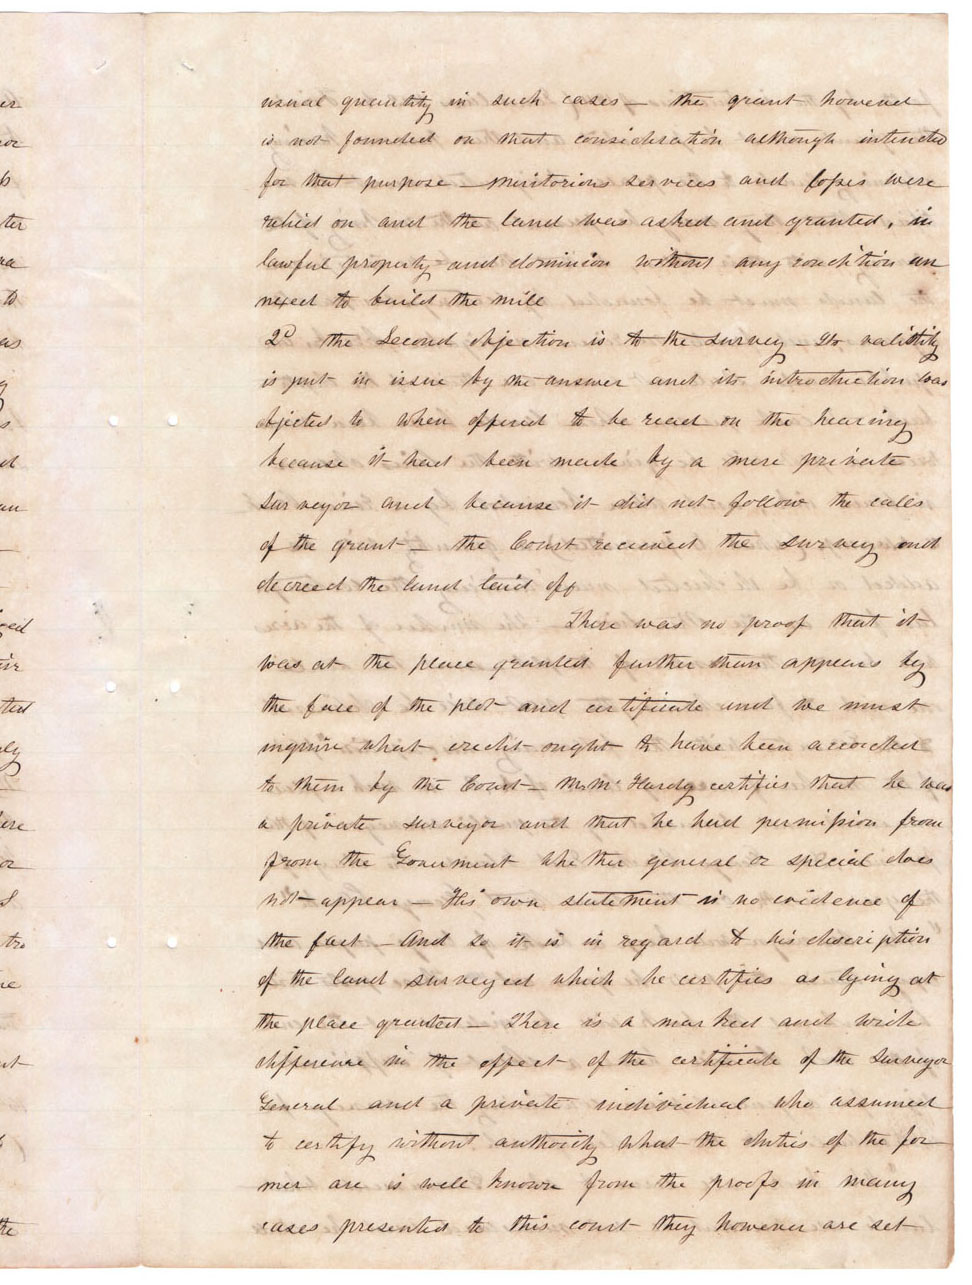 usual quantity in such cases — the grant however
is not founded on that consideration although intended
for that purpose — meritorious services and losses were
relied on and the land was asked and granted, in
lawful property and dominion without any condition an
nexed to build the mill
2d the Second objection is to the survey — Its validity
is put in issue by the answer and its introduction was
objected to when offered to be read on the hearing
because it had been made by a mere private
surveyor and because it did not follow the calls
of the grant — the Court received the survey and
decreed the land laid off
There was no proof that it
was at the place granted further than appears by
the face of the plot and certificate and we must
inquire what credit ought to have been accorded
to them by the Court — Mr McHardy certifies that he was
a private surveyor and that he had permission from
from the Goverment whether general or special does
not appear — His own statement is no evidence of
the fact — And so it is in regard to his discription
of the land surveyed which he certifies as lying at
the place granted — There is a marked and wide
difference in the effect of the certificate of the Surveyor
General and a private individual who assumed
to certify without authority what the duties of the for
mer are is well known from the proofs in many
cases presented to this court they however are set